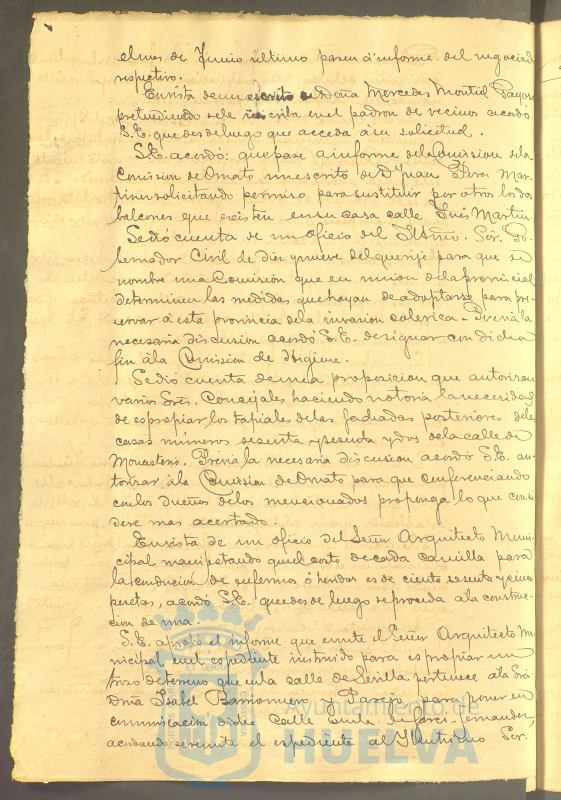 el mes de Junio último pasen á informe del negociado
respectivo.
En vista de un escrito de Doña Mercedes Montiel
pretendiendo se le inscriba en el padron de vecinos acordó
S.E. que desde luego que acceda á su solicitud.
S.E. acordó: que pase a informe de la Comision de la
Comision de Ornato un escrito de D. Juan Perez Mar-
tinez solicitando permiso para sustituir por otros los dos
balcones que existen en su casa calle Inés Martin
Se dió cuenta de un oficio del Iltmo. Sor. Go-
bernador Civil de diez y nueve del que rije para que se
nombre una Comision que en union de la provincial
determinen las medidas que hayan de adoptarse para pre-
servar á esta provincia de la invasion colerica. Previa la
necesaria discusion acordó S.E. designar con dicho
fin á la Comision de Higiene.
Se dió cuenta de una proposicion que autorizan
varios Sres. Concejales haciendo notoria la necesidad
de espropiar los tapiales de las fachadas posteriores de las
casas números sesenta y sesenta y dos de la calle de
Monasterio. Previa la necesaria discusion acordó S.E. au-
torizar á la Comision de Ornato para que conferenciando
con los dueños de los mencionados proponga lo que consi-
dere mas acertado.
En vista de un oficio del Señor Arquitecto Muni-
cipal manifestando que el costo de cada camilla para
la conduccion de enfermos ó heridos es de ciento sesenta y cinco
pesetas, acordó S.E. que desde luego se proceda á la construc-
cion de una.
S.E. aprobó el informe que emite el Señor Arquitecto Mu-
nicipal en el espediente instruido para espropiar un
trozo de terreno que en la calle de Sevilla pertenece á la Sra.
Doña Isabel Barromero y para poner en
comunicacion dicha calle con la
acordando se remita el espediente al Ilustrisimo Sor.
Ayuntamiento de
HUELVA